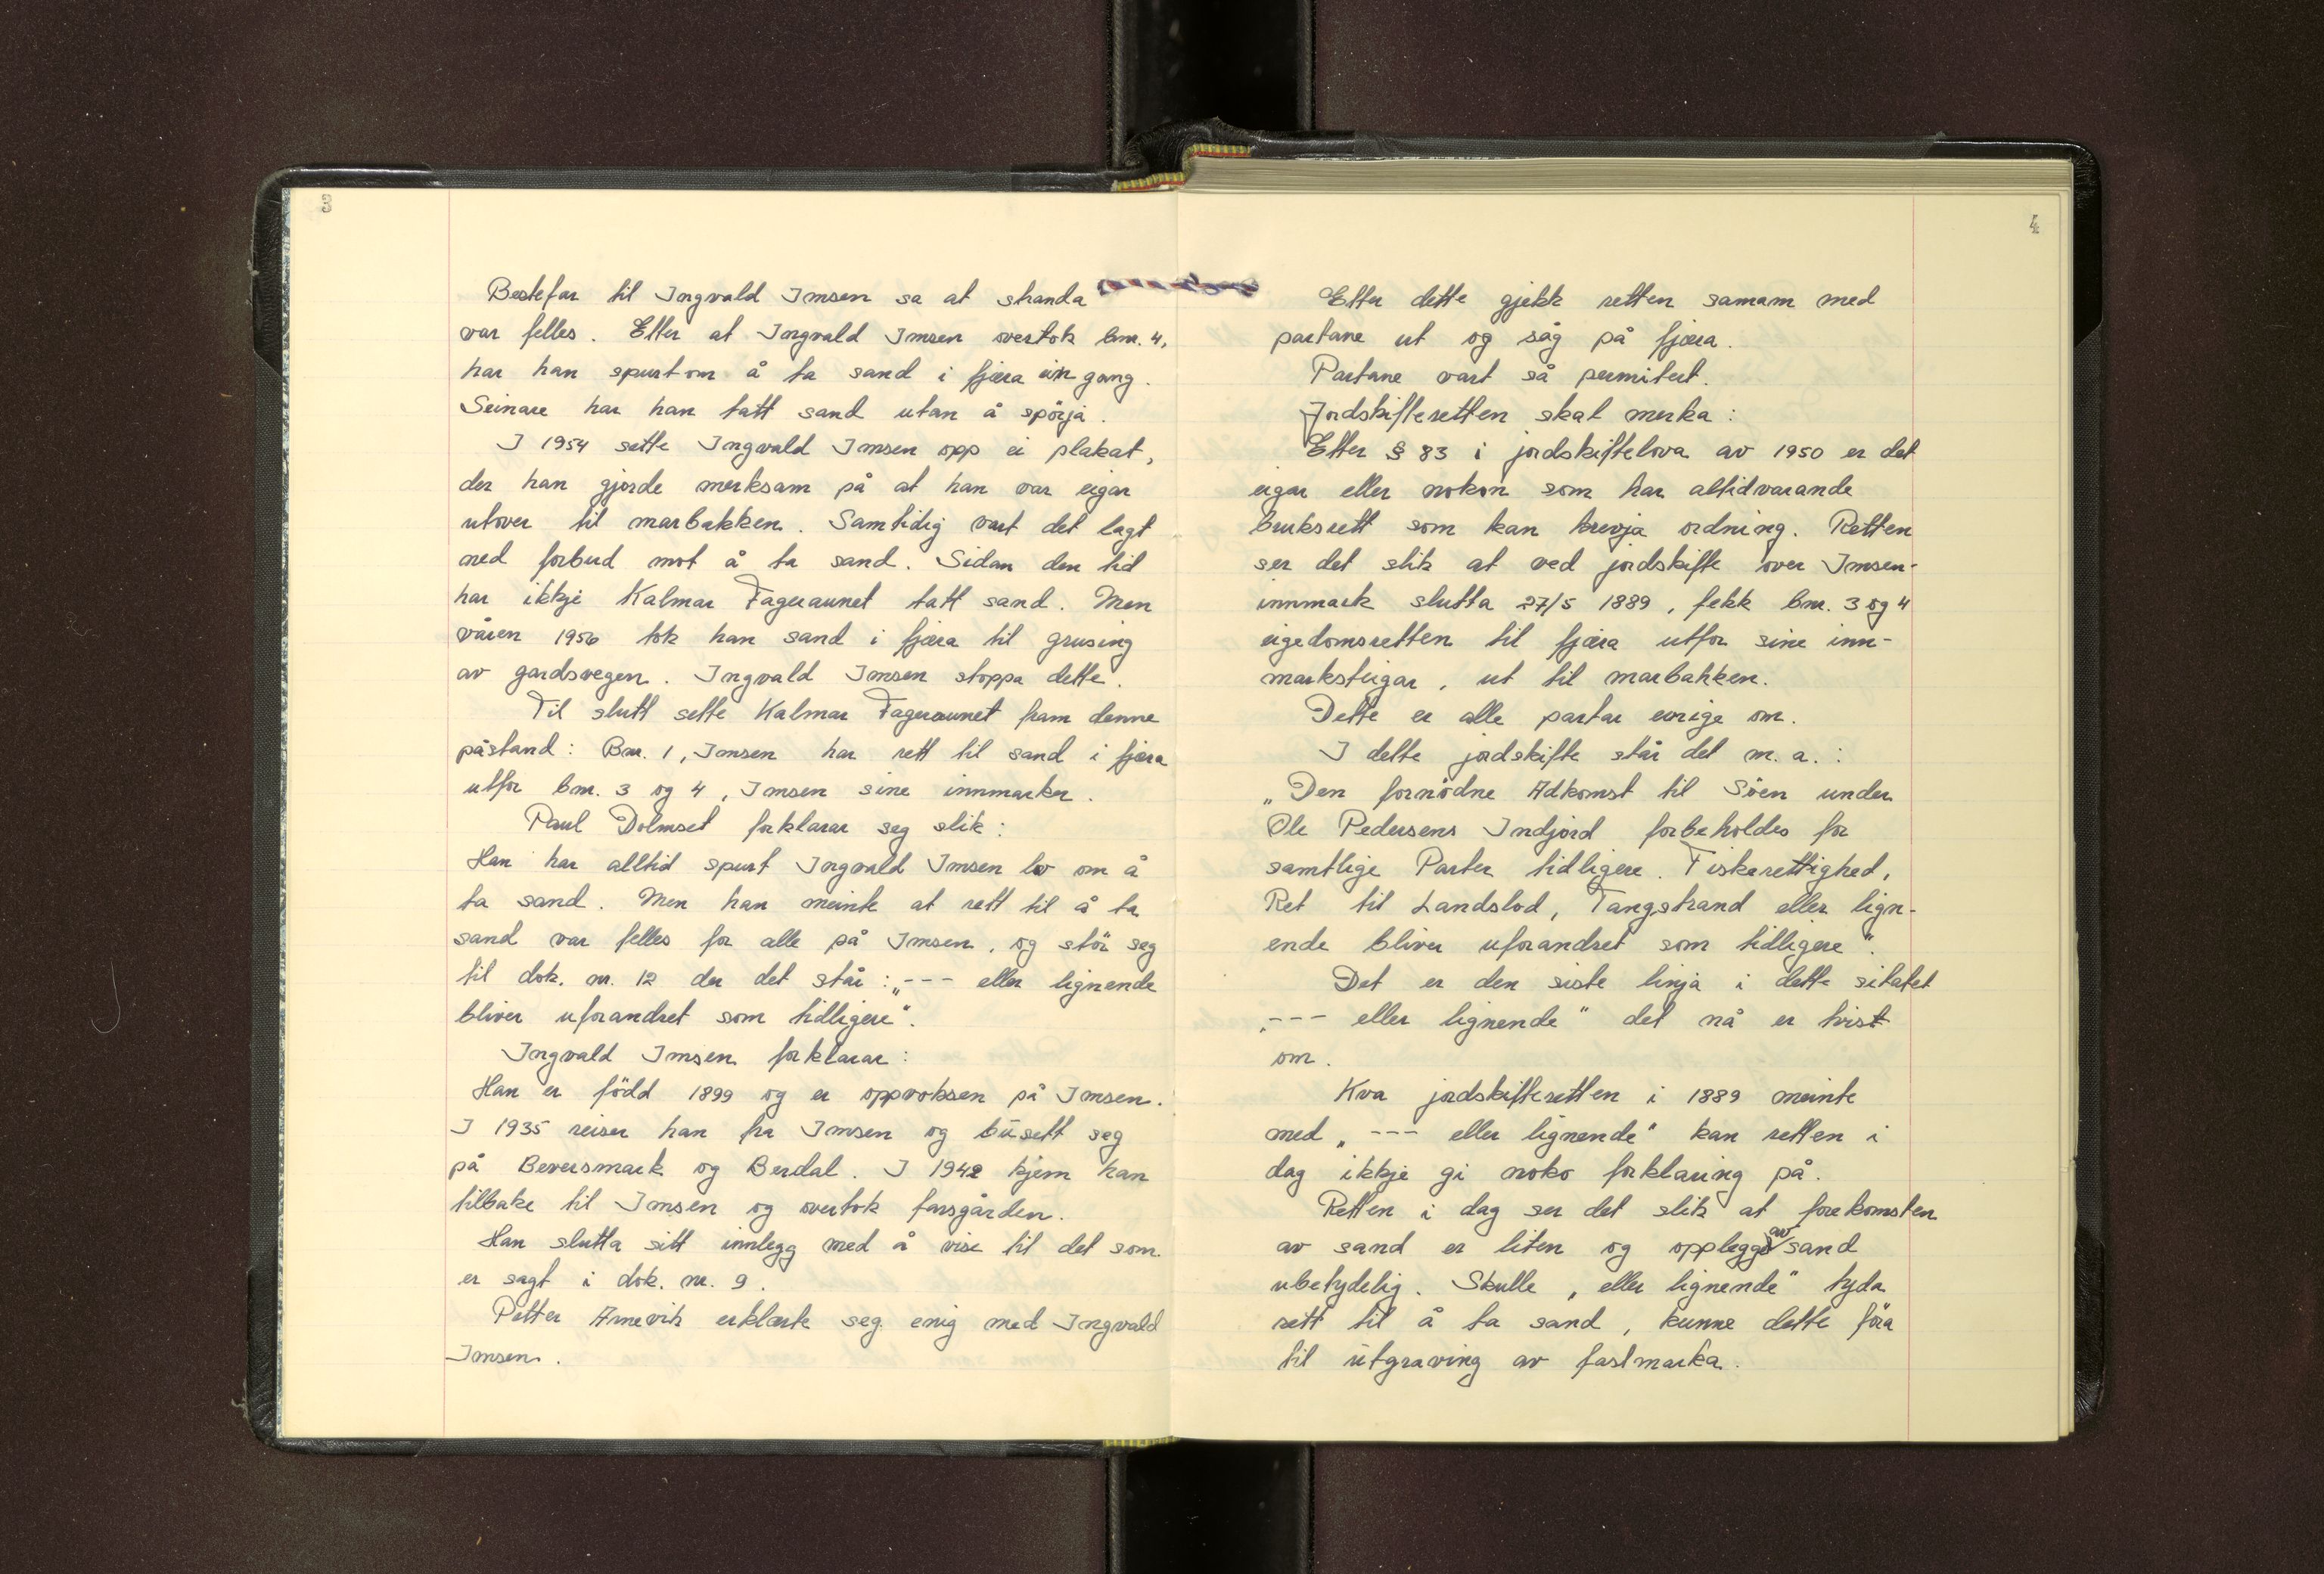 3
Bestefar til Ingvald Imsen sa at stranda
var felles. Etter at Ingvald Imsen overtok bnr. 4,
har han spurt om å ta sand i fjæra ein gong.
Seinare har han tatt sand utan å spörja.
I 1954 sette Ingvald Imsen opp ei plakat,
der han gjorde merksam på at han var eigar
utover til marbakken. Samtidig vart det lagt
ned forbud mot å ta sand. Sidan den tid
har ikkje Kalmar Fageraunet tatt sand. Men
våren 1956 tok han sand i fjæra til grusing
av gardsvegen. Ingvald Imsen stoppa dette.
Til slutt sette Kalmar Fageraunet fram denne
påstand: Bnr. 1, Imsen har rett til sand i fjæra
utfor bnr. 3 og 4, Imsen sine innmarker.
Paul Dolmset forklarar seg slik:
Han har alltid spurt Ingvald Imsen lov om å
ta sand. Men han meinte at rett til å ta
sand var felles for alle på Imsen, og stör seg
til dok. nr. 12 der det står: „--- eller lignende
bliver uforandret som tidligere".
Ingvald Imsen forklarar:
Han er född 1899 og er oppvoksen på Imsen.
I 1935 reiser han fra Imsen og busett seg
på Beversmark og Berdal. I 1942 kjem han
tilbake til Imsen og overtok farsgården.
Han slutta sitt innlegg med å vise til det som
er sagt i dok. nr. 9.
Petter Arnevik erklærte seg enig med Ingvald
Imsen.
4
Etter dette gjekk retten samam med
partane ut og såg på fjæra.
Partane vart så permitert.
Jordskifteretten skal merka:
Etter § 83 i jordskiftelova av 1950 er det
eigar eller nokon som har altidvarande
bruksrett som kan krevja ordning. Retten
ser det slik at ved jordskifte over Imsen-
innmark slutta 27/5 1889, fekk bnr. 3 og 4
eigedomsretten til fjæra utfor sine inn-
marksteigar, ut til marbakken.
Dette er alle partar einige om.
I dette jordskifte står det m. a.:
„Den fornödne Adkomst til Söen under
Ole Pedersens Indjord forbeholdes for
samtlige Parter tidligere. Fiskerettighed,
Ret til Landslod, Tangstrand eller lign-
ende bliver uforandret som tidligere".
Det er den siste linja i dette sitatet
„--- eller lignende" det nå er tvist
om.
Kva jordskifteretten i 1889 meinte
med „--- eller lignende" kan retten i
dag ikkje gi noko forklaring på.
Retten i dag ser det slik at forekomsten
av sand er liten og opplegget av sand
ubetydelig. Skulle „eller lignende" tyda
rett til å ta sand, kunne dette föra
til utgraving av fastmarka.